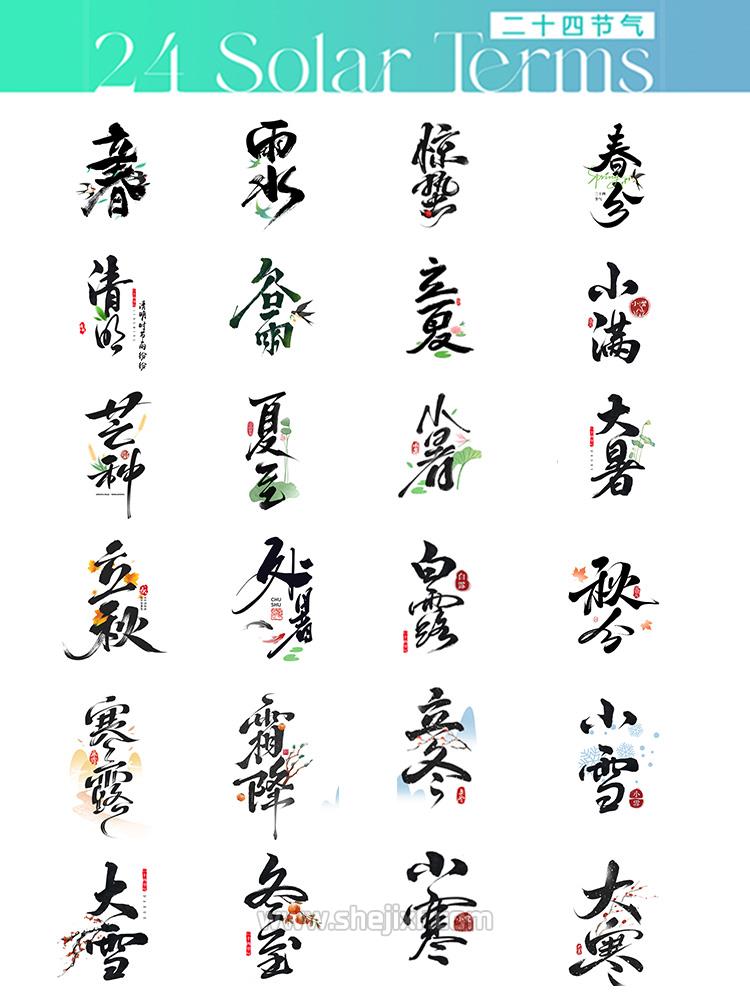 二十四节气
24 Solar Terms
立春
雨水
惊蛰
春分
Spring
清明
清明时节雨纷纷
谷雨
立夏
小满
小满
芒种
夏至
小暑
大暑
立秋
秋
处暑
CHU
SHU
白露
白露
秋分
寒露
霜降
立冬
立冬
小雪
小雪
大雪
冬至
小寒
大寒
www.shejixf.com